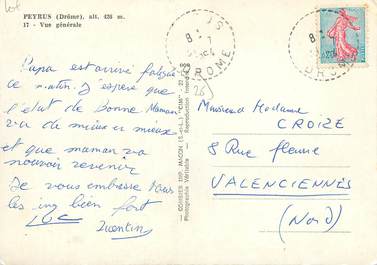 PEYRUS (Drôme), alt. 426 m.
17 - Vue générale
DROME
Papa est arrivé fatigué
ce matin. J'espère que
l'état de Bonne Maman
va de mieux en mieux
et que maman va
pouvoir revenir
Je vous embrasse tous
les cinq bien fort
Luc Quentin
COMBIER IMP. MACON (S.-et-L.) "CIM"
Photographie Véritable - Reproduction Interdite
Monsieur Madame
CROIZE
8 Rue fleurie
VALENCIENNES
(Nord)